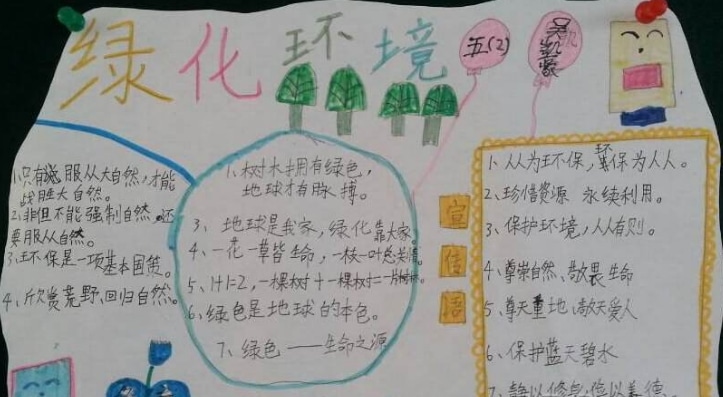 绿化环境
五(2)
吴凯豪
1.只有服从大自然,才能
战胜大自然。
2.非但不能强制自然,还
要服从自然。
3.环保是一项基本国策。
4、欣赏荒野,回归自然。
1.树木拥有绿色,
地球才有脉搏。
3、地球是我家,绿化靠大家。
4、一花一草皆生命,一枝一叶总关情。
5、1+1=2,一棵树+一棵树=一片
6、绿色是地球的本色。
7、绿色——生命之源
宣
传
语
1、人人为环保,环保为人人。
2、珍惜资源 永续利用。
3、保护环境,人人有则。
4、尊崇自然、敬畏生命
5、尊天重地、敬天爱人
6、保护蓝天碧水
7、静以修身,俭以养德。